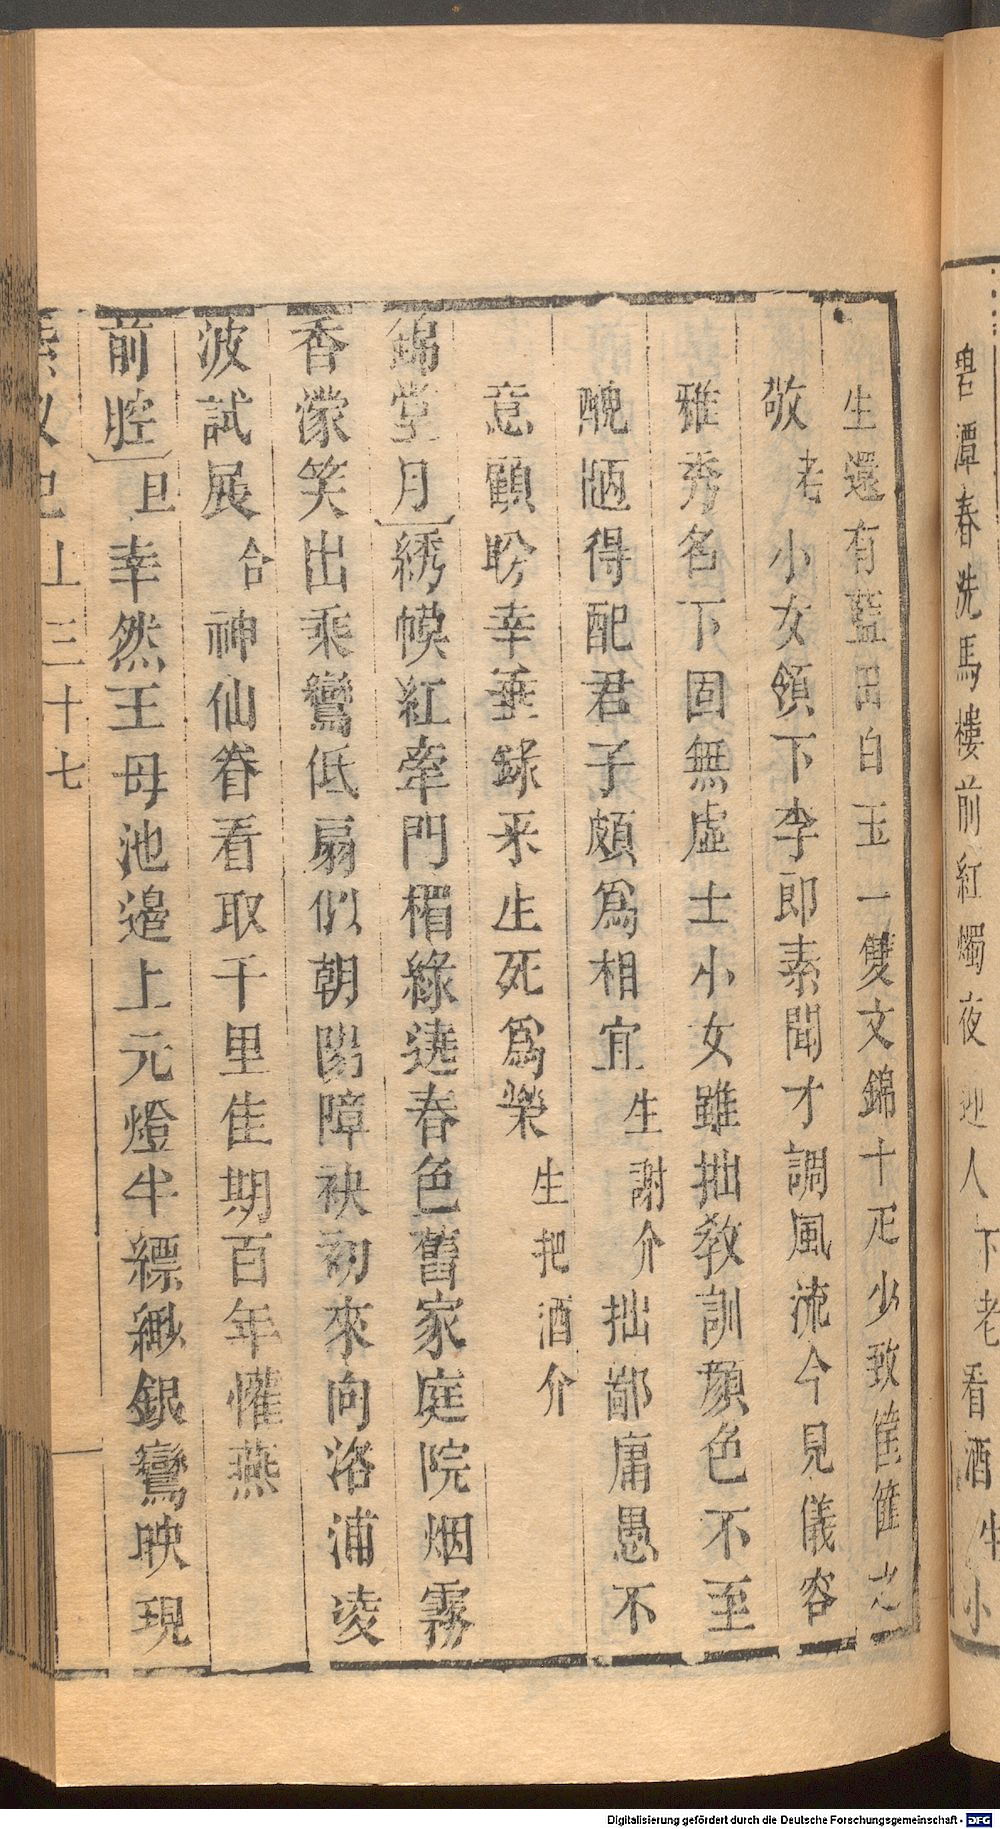 碧潭春洗馬樓前紅燭夜迎人下老看酒生小
生還有藍田白玉一雙文錦十疋少致筐篚之
敬老小女領下李郎素聞才調風流今見儀容
雅秀名下固無虛士小女雖拙教訓顏色不至
醜陋得配君子頗爲相宜生謝介拙鄙庸愚不
意顧盼幸垂錄采生死爲榮生把酒介
錦堂月綉幙紅牽門楣綠遶春色舊家庭院烟霧
香濛笑出乘鸞低扇似朝陽障袂初來向洛浦凌
波試展合神仙眷看取千里佳期百年懽燕
前腔旦幸然王母池邉上元燈半縹緲銀鸞映現
上三十七
Digitalisierung gefördert durch die Deutsche Forschungsgemeinschaft - DFG